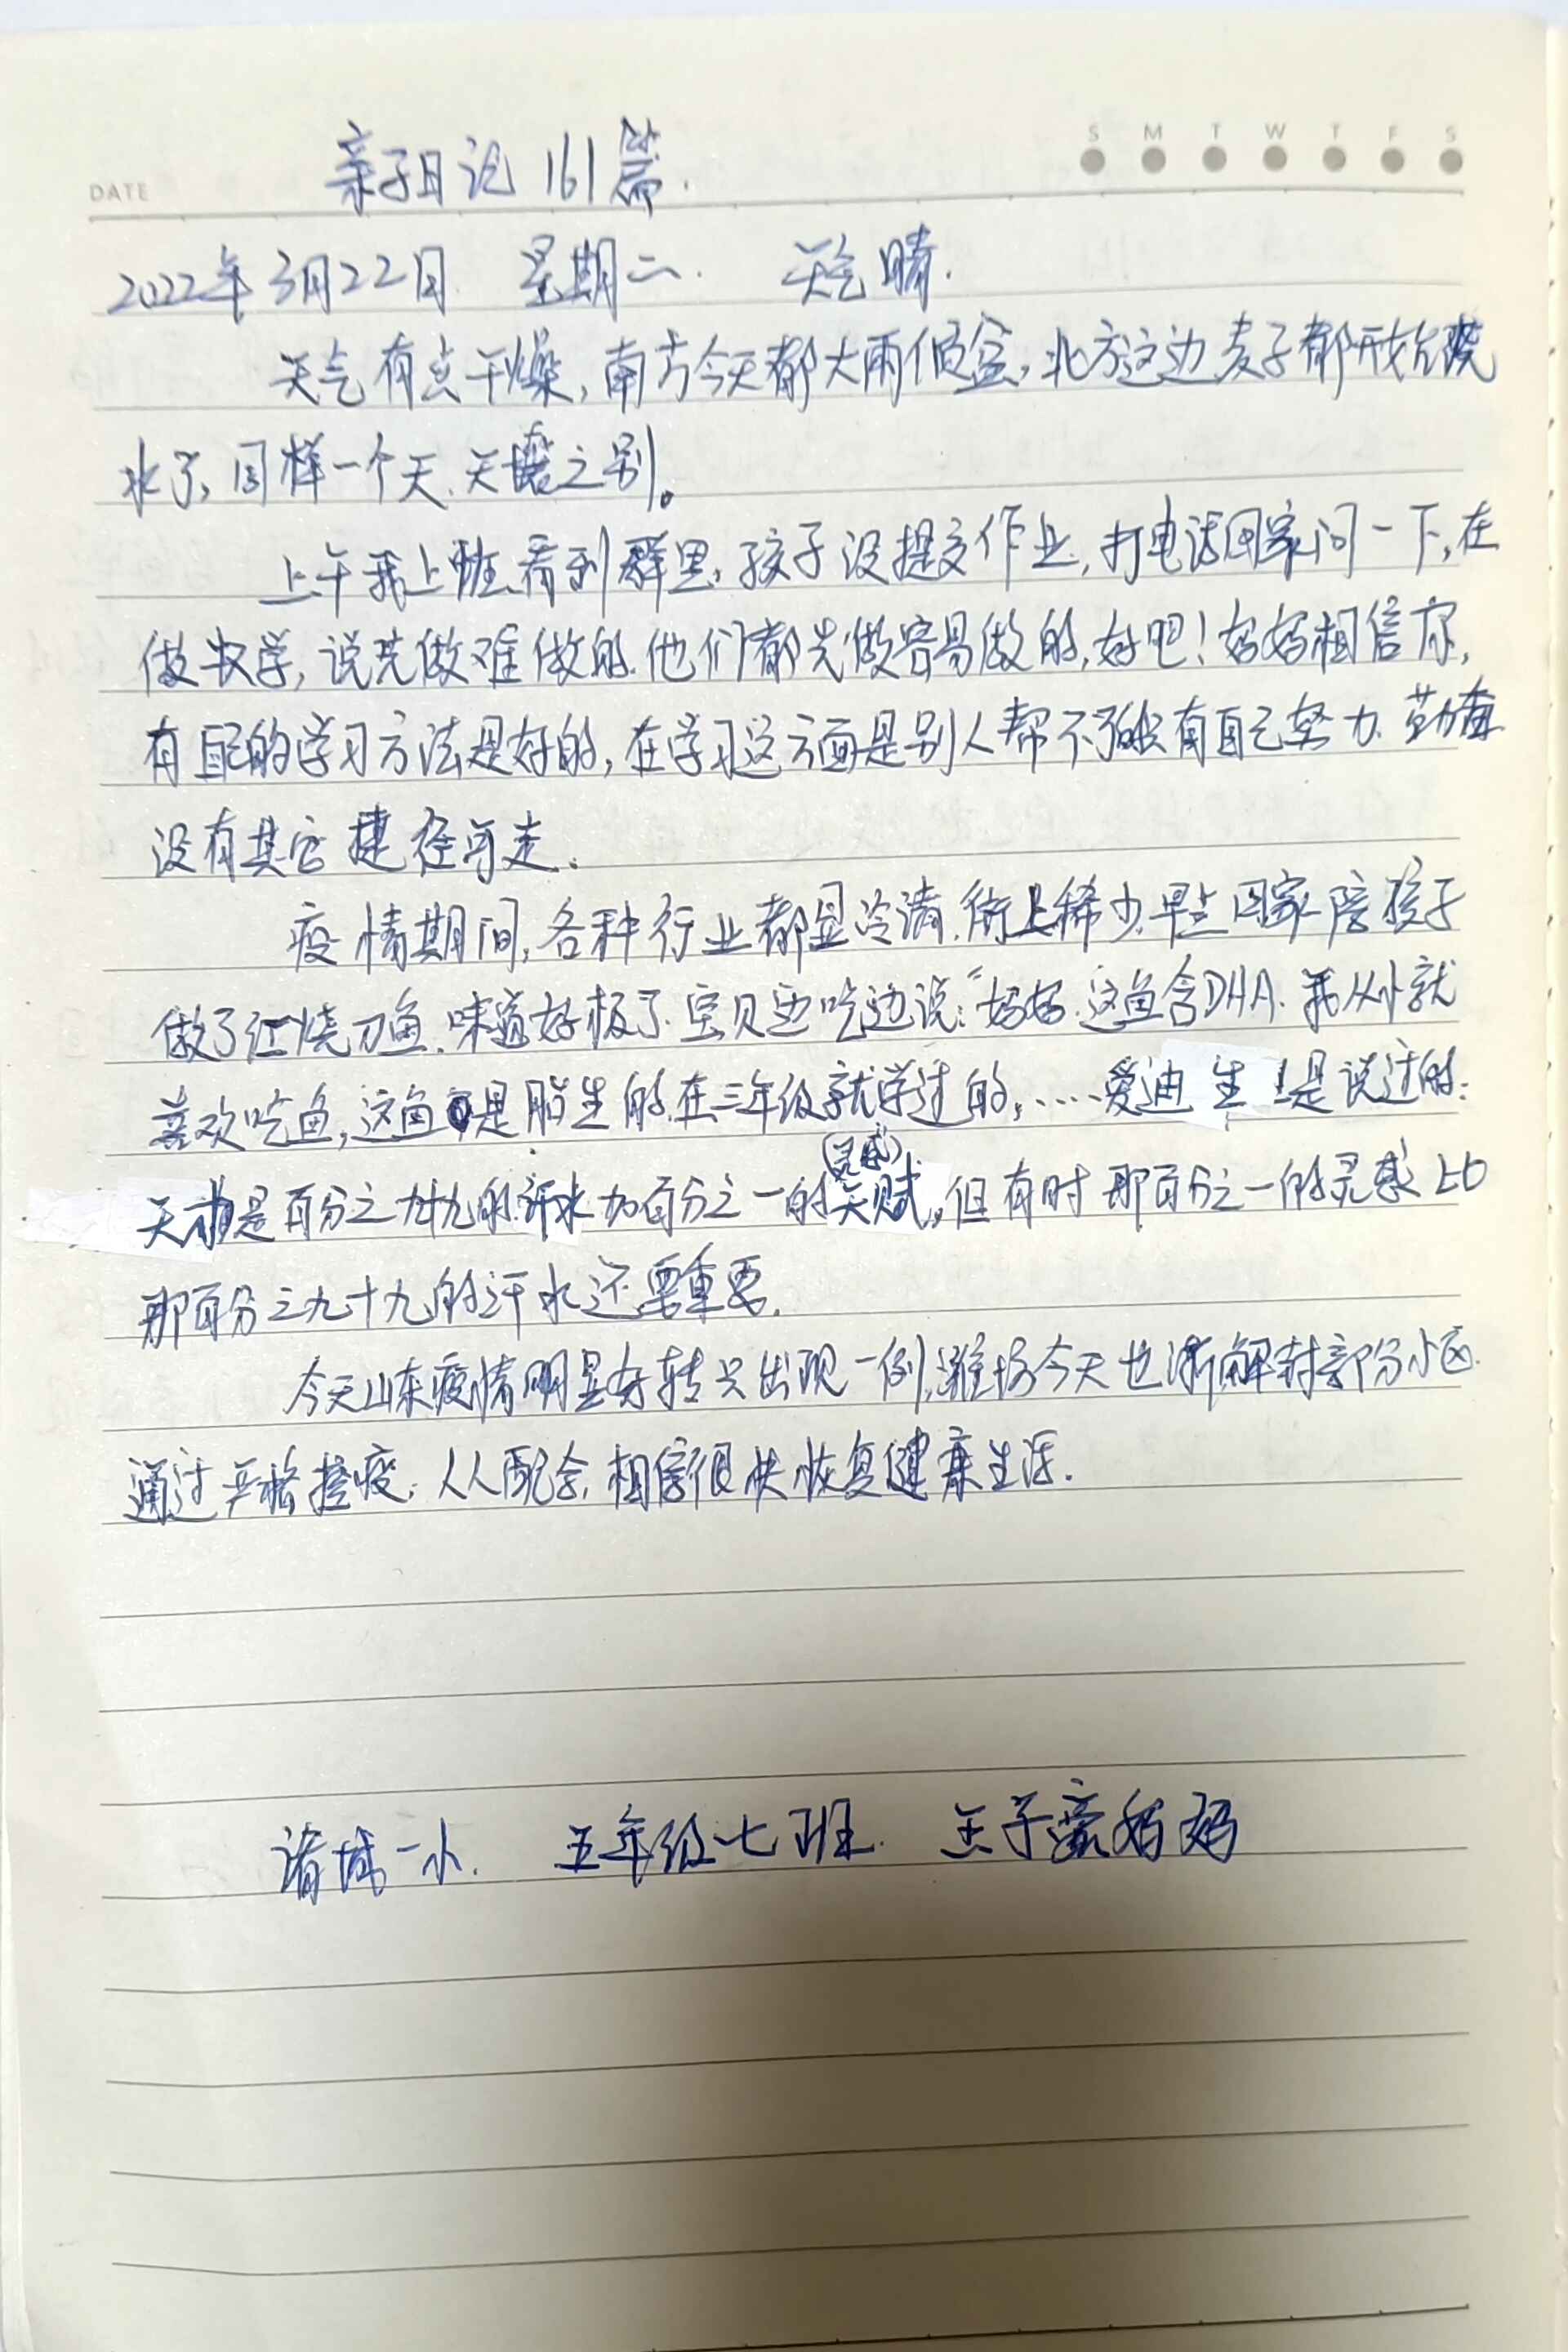 DATE
S M T W T F S
亲子日记 161篇.
2022年3月22日 星期二. 天气 晴.
天气有点干燥,南方今天都大雨倾盆,北方这边麦子都开始浇
水了,同样一个天、天壤之别。
上午我上班看到群里,孩子没提交作业,打电话回家问一下,在
做数学,说先做难做的.他们都先做容易做的,好吧!妈妈相信你,
有自己的学习方法是好的,在学习这方面是别人帮不了的只有自己努力、勤奋
没有其它捷径可走.
疫情期间,各种行业都显冷清.街上稀少.早点回家陪孩子
做了红烧刀鱼.味道好极了.宝贝边吃边说:“妈妈.这鱼含DHA.我从小就
喜欢吃鱼,这鱼是胎生的.在三年级就学过的,....爱迪生是说过的:
天才是百分之九十九的汗水加百分之一的天赋(灵感),但有时那百分之一的灵感比
那百分之九十九的汗水还要重要.
今天山东疫情明显好转只出现一例,潍坊今天也渐解封部分小区.
通过严格控疫,人人配合,相信很快恢复健康生活.
诸城一小. 五年级七班. 王子 妈妈